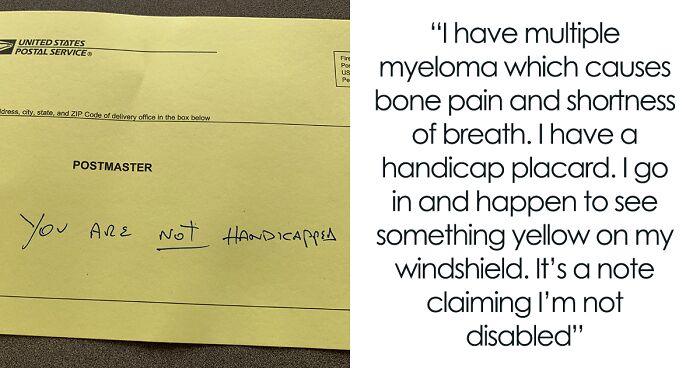 UNITED STATES
POSTAL SERVICE®
Fire
Pos
US
Pe
dress, city, state, and ZIP Code of delivery office in the box below
POSTMASTER
YOU ARE NOT HANDICAPPED
“I have multiple
myeloma which causes
bone pain and shortness
of breath. I have a
handicap placard. I go
in and happen to see
something yellow on my
windshield. It’s a note
claiming I’m not
disabled”